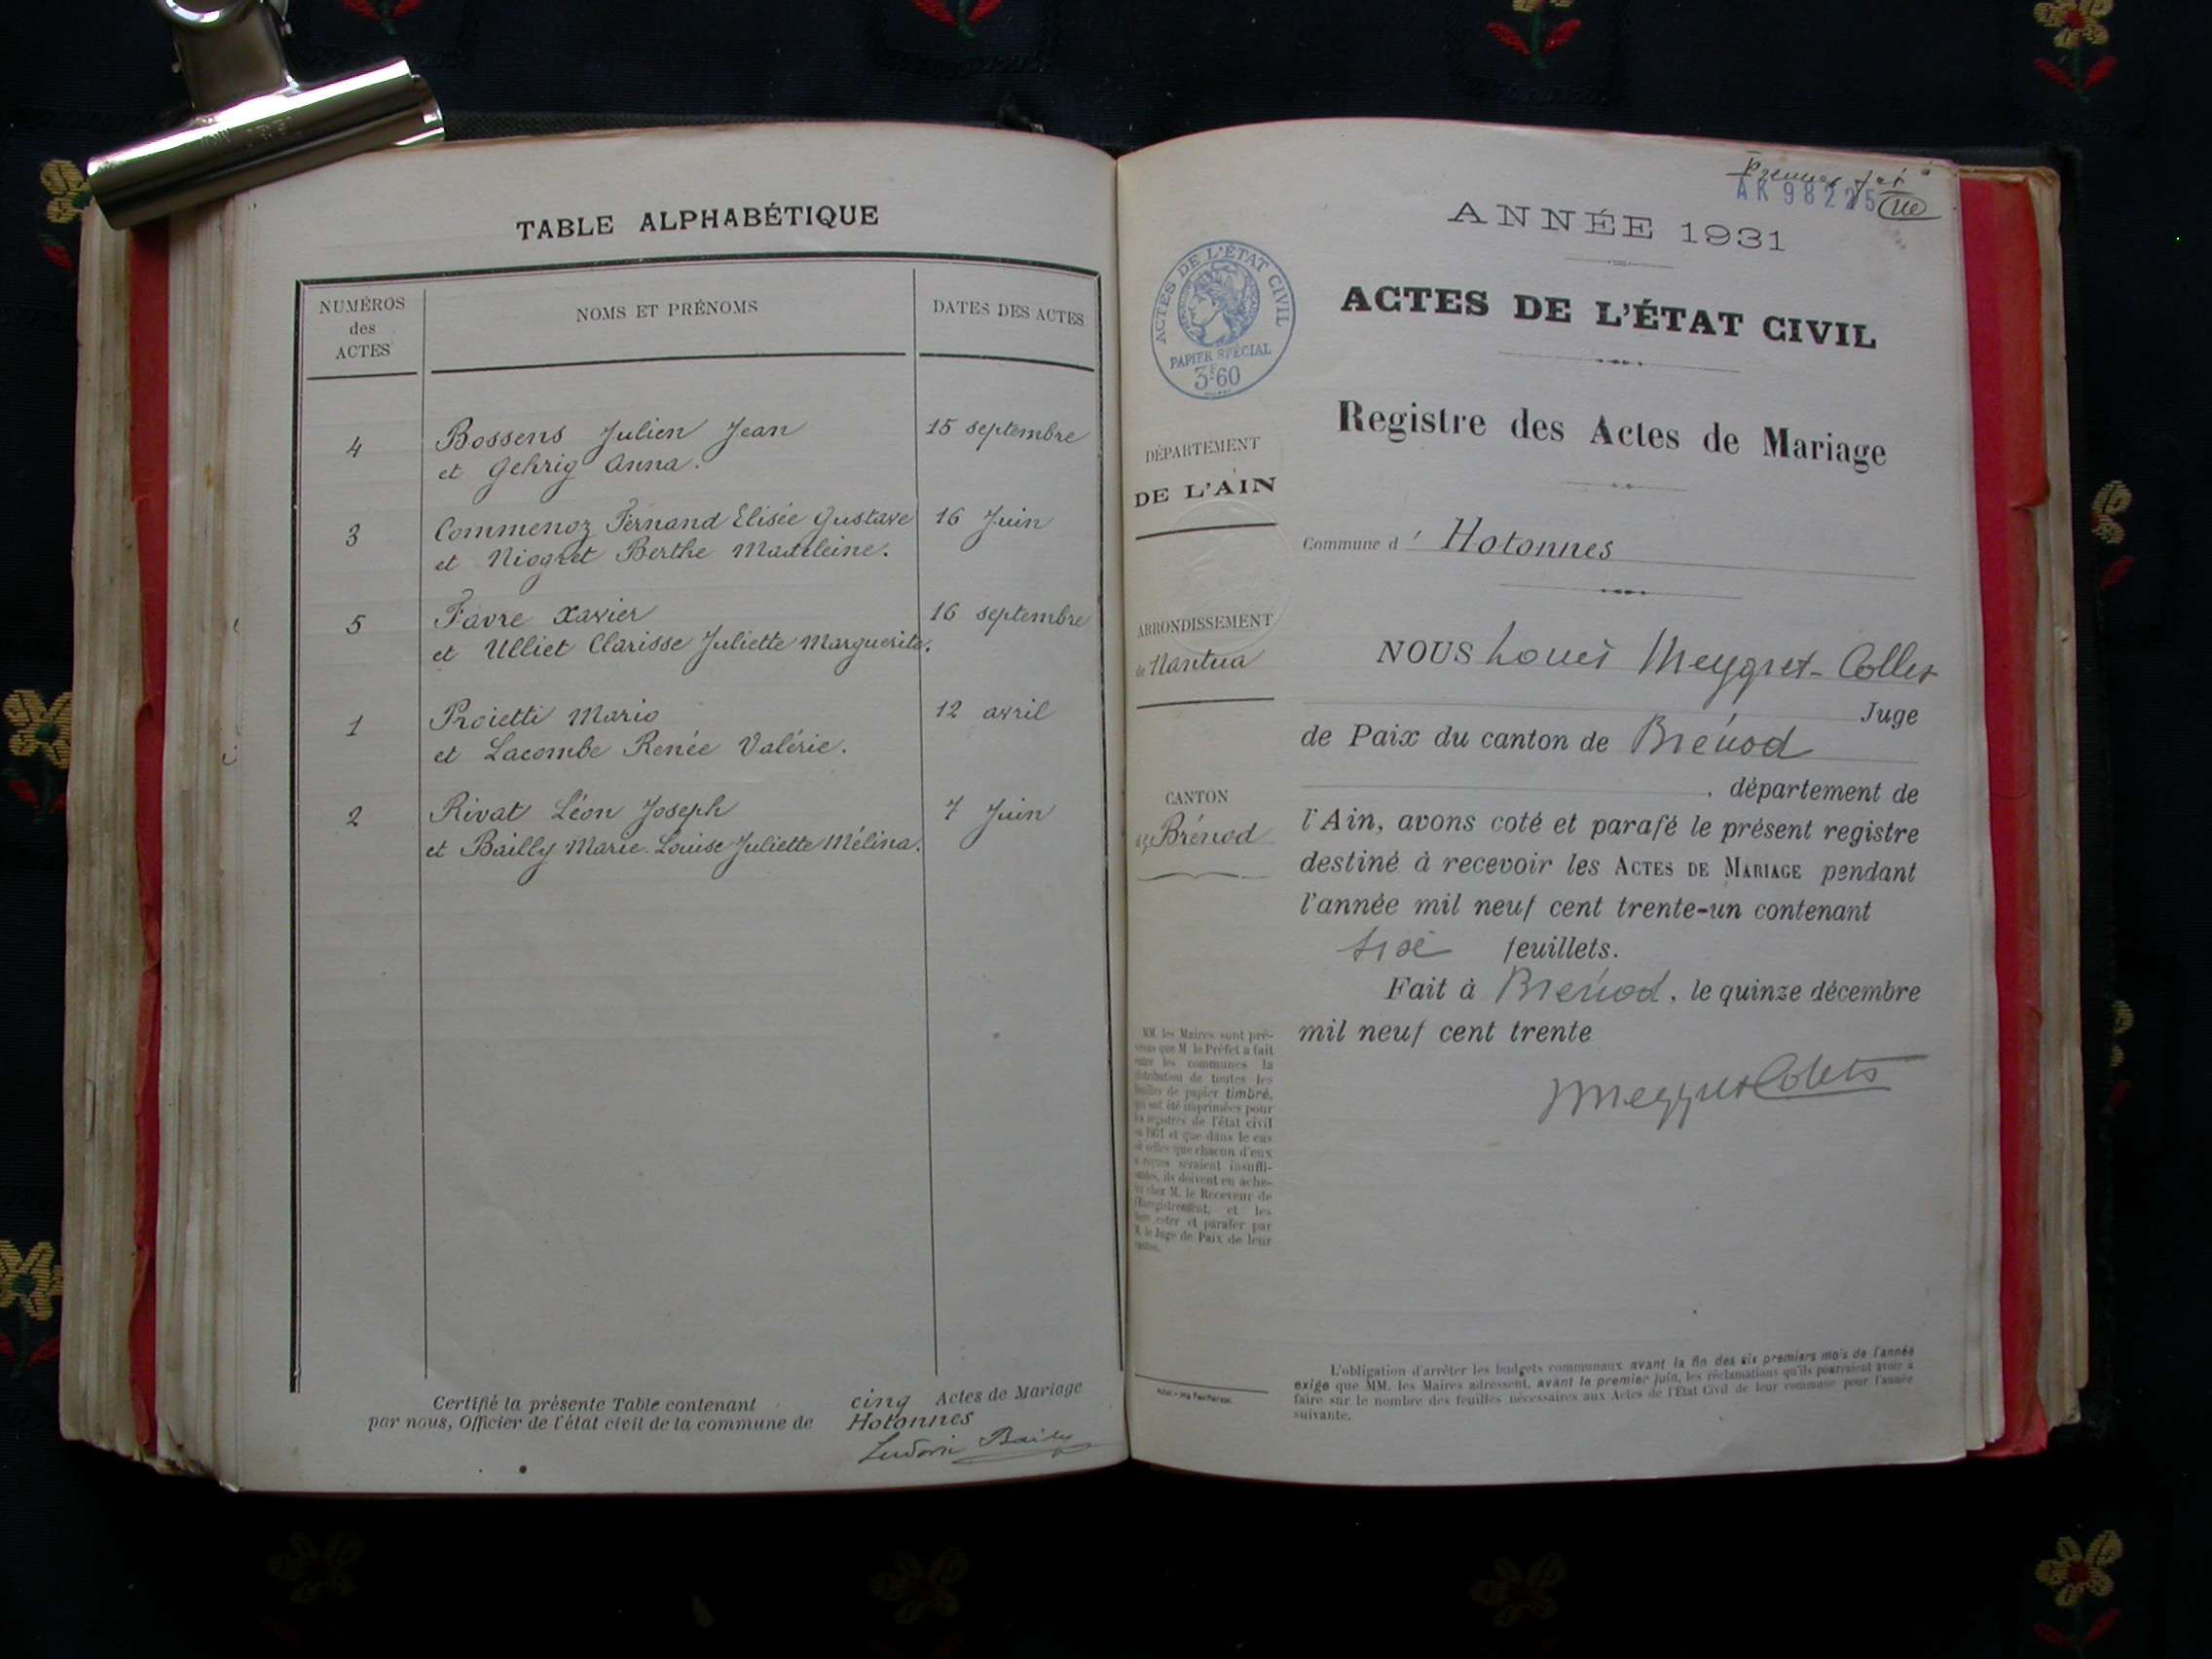 TABLE ALPHABÉTIQUE
NUMÉROS
des
ACTES
NOMS ET PRÉNOMS
DATES DES ACTES
4 Bossens Julien Jean 15 septembre
et Gehrig Anna.
3 Commenoz Fernand Elisée Gustave 16 Juin
et Niogret Berthe Madeleine.
5 Favre Xavier 16 septembre
et Ulliet Clarisse Juliette Marguerite.
1 Proietti Mario 12 avril
et Lacombe Renée Valérie.
2 Rivat Léon Joseph 7 Juin
et Bailly Marie-Louise Juliette Mélina.
Certifié la présente Table contenant cinq Actes de Mariage
par nous, Officier de l'état civil de la commune de Hotonnes
AK 98225
ANNÉE 1931
ACTES DE L'ÉTAT CIVIL
PAPIER SPÉCIAL
3F60
ACTES DE L'ÉTAT CIVIL
Registre des Actes de Mariage
DÉPARTEMENT
DE L'AIN
Commune d' Hotonnes
ARRONDISSEMENT
de Nantua
CANTON
de Brénod
NOUS Louis Meygret-Collet
Juge
de Paix du canton de Brénod
, département de
l'Ain, avons coté et parafé le présent registre
destiné à recevoir les ACTES DE MARIAGE pendant
l'année mil neuf cent trente-un contenant
feuillets.
Fait à Brénod, le quinze décembre
mil neuf cent trente
MM. les Maires sont pré-
venus que M. le Préfet a fait
entre les communes la
distribution de toutes les
feuilles de papier timbré,
qui ont été imprimées pour
les registres de l'état civil
en 1931 et que dans le cas
où celles que chacun d'eux
a reçues seraient insuffi-
santes, ils doivent en ache-
ter chez M. le Receveur de
l'Enregistrement, et les
faire coter et parafer par
M. le Juge de Paix de leur
canton.
L'obligation d'arrêter les budgets communaux avant la fin des six premiers mois de l'année
exige que MM. les Maires adressent, avant le premier juin, les réclamations qu'ils pourraient avoir à
faire sur le nombre des feuilles nécessaires aux Actes de l'État Civil de leur commune pour l'année
suivante.